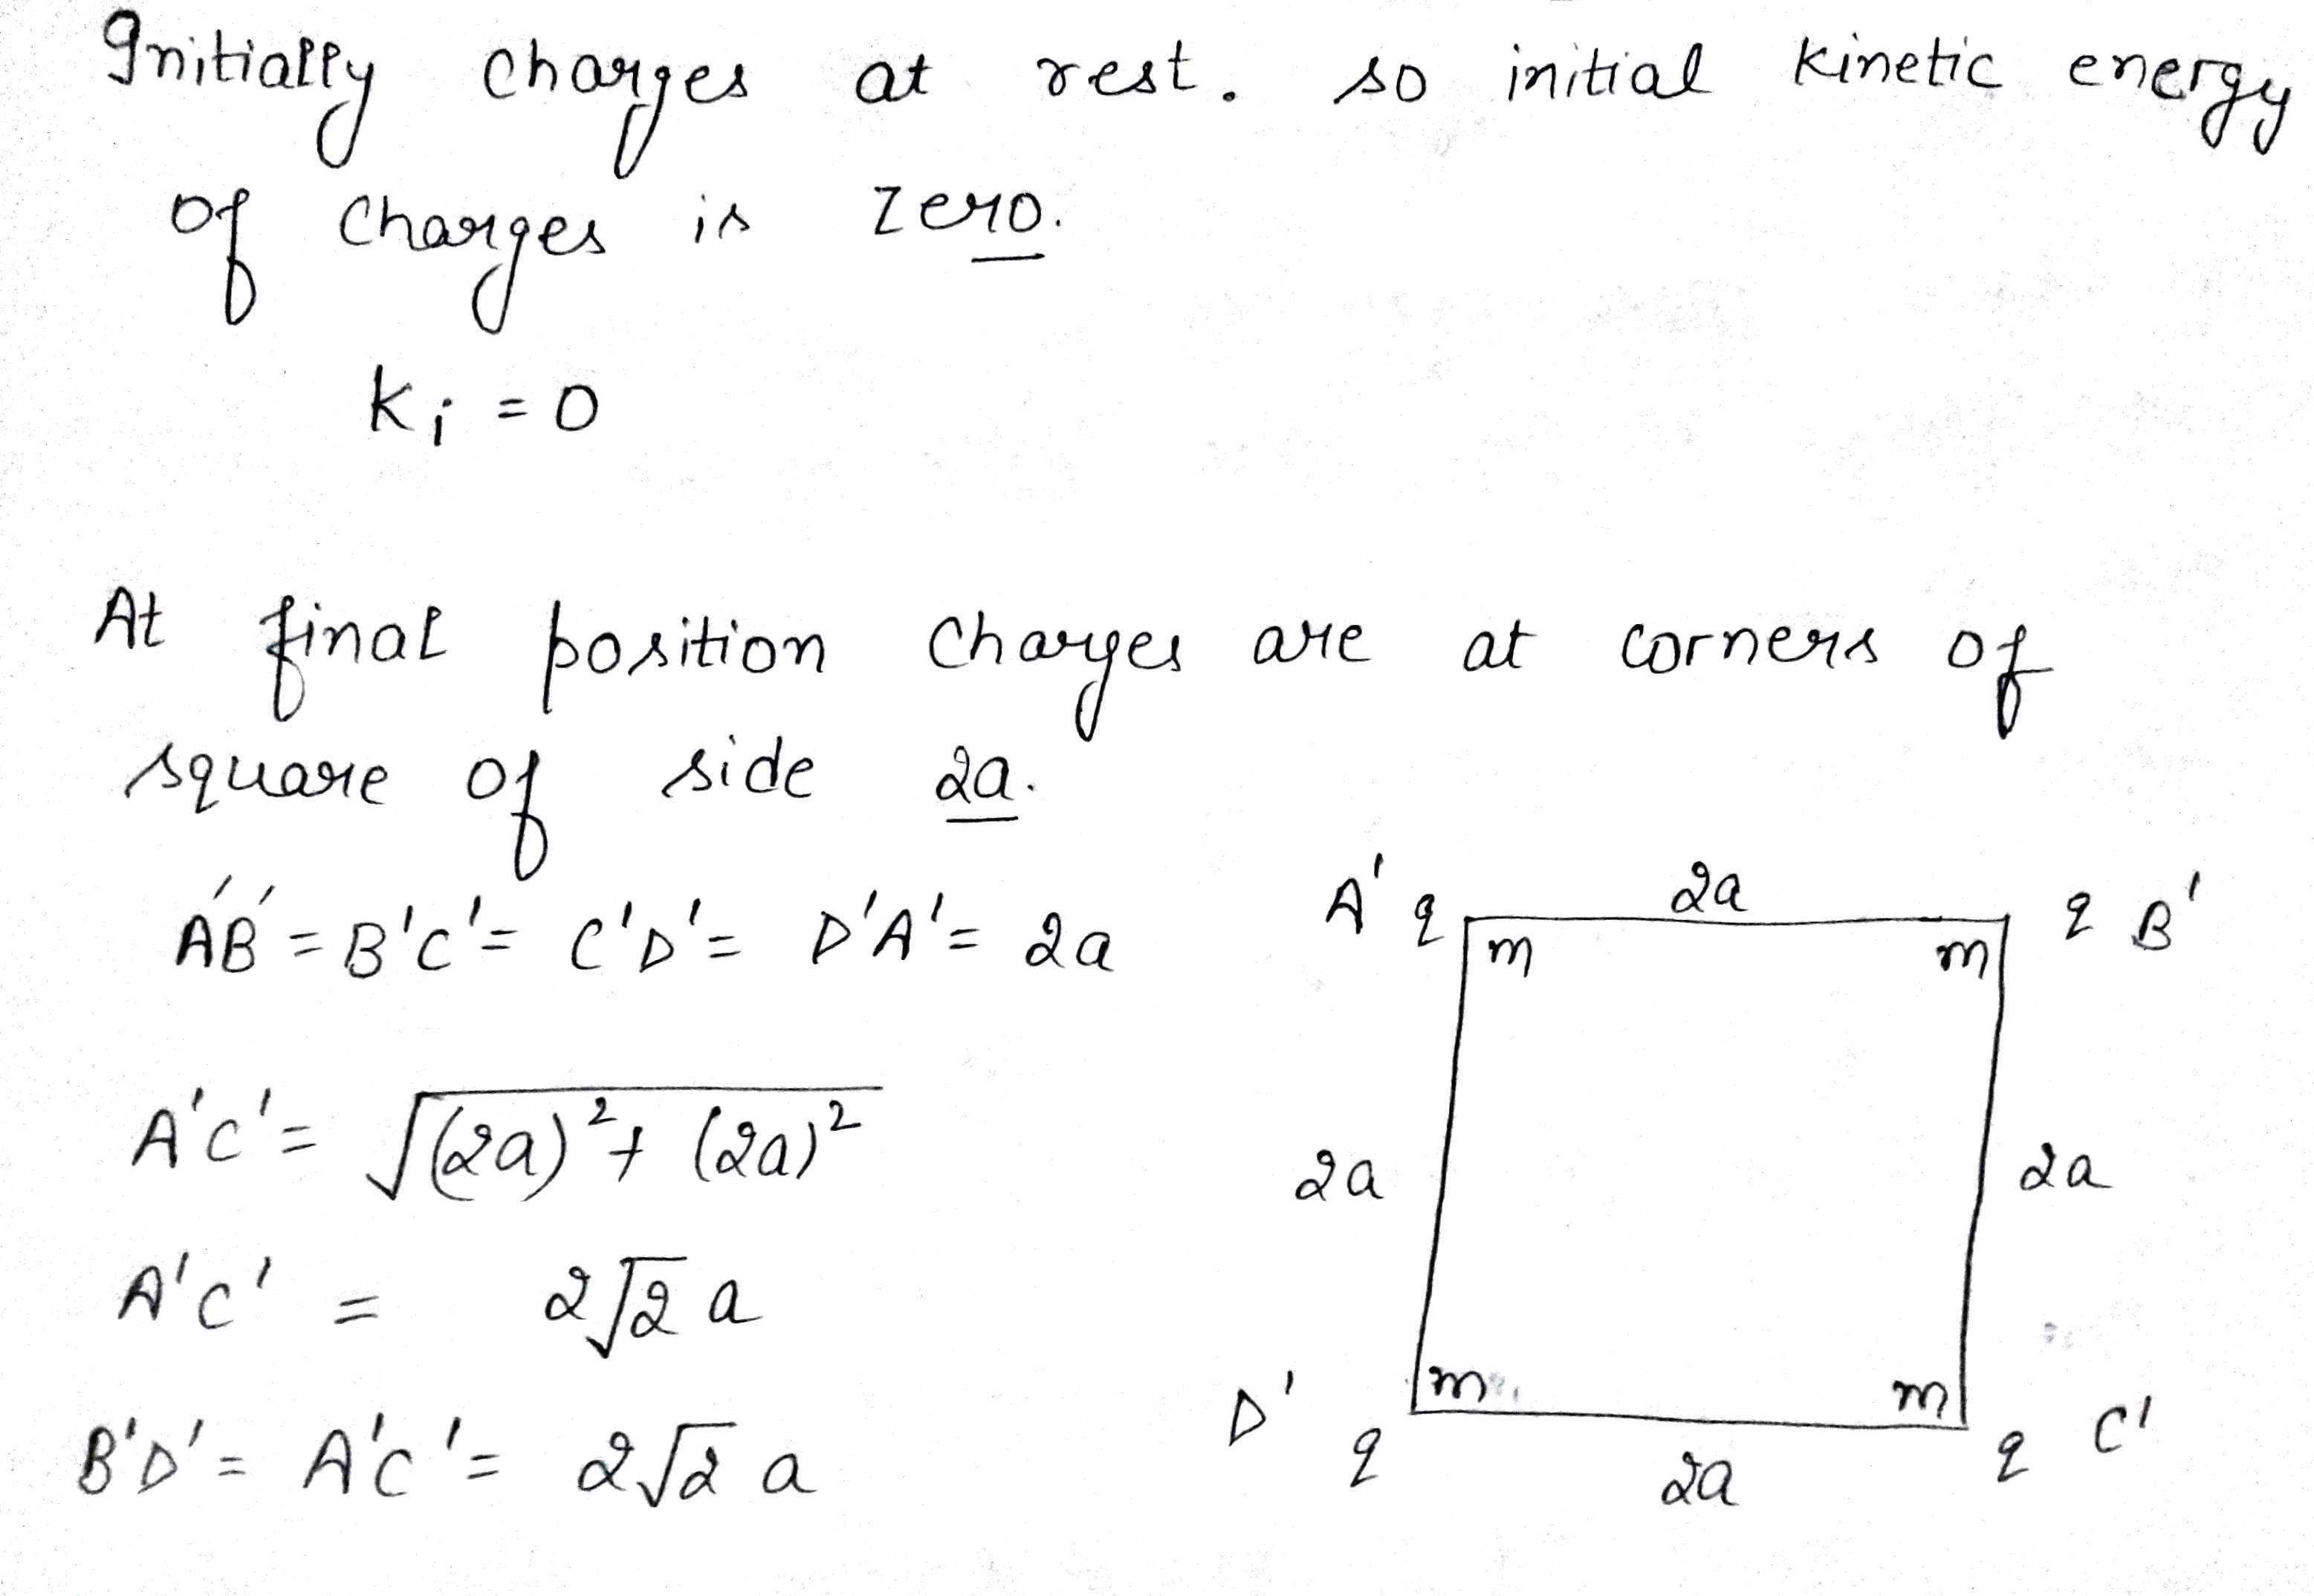 Initially charges at rest. so initial kinetic energy
of charges is zero.
Ki = 0
At final position charges are at corners of
square of side 2a.
A'B' = B'C' = C'D' = D'A' = 2a
A'C' = √((2a)² + (2a)²)
A'C' = 2√2 a
B'D' = A'C' = 2√2 a
A' q 2a q B'
m m
2a 2a
m m
D' q 2a q C'